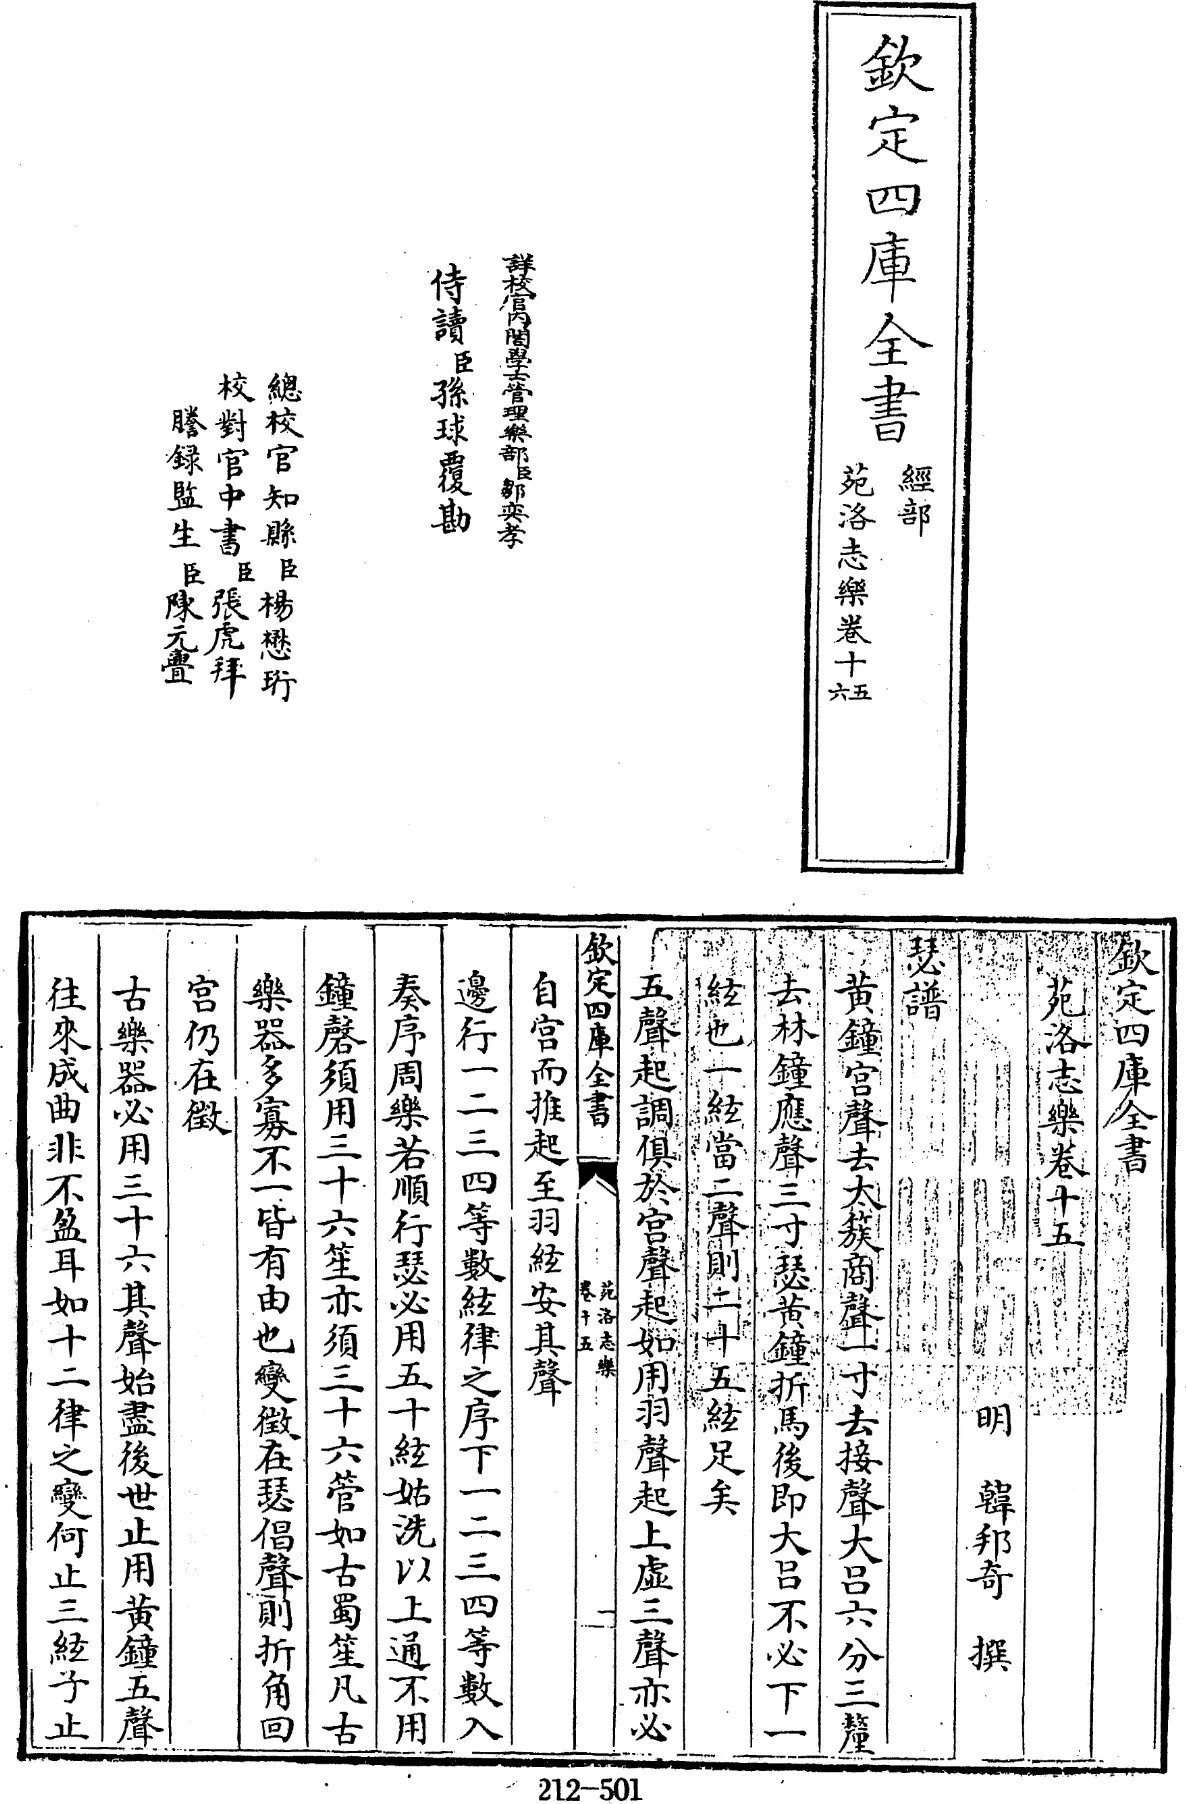 欽定四庫全書
經部
苑洛志樂卷十五六
詳校官内閣學士管理樂部臣鄒奕孝
侍讀臣孫球覆勘
總校官知縣臣楊懋珩
校對官中書臣張虎拜
謄録監生臣陳元疊
欽定四庫全書
苑洛志樂卷十五
明 韓邦奇 撰
瑟譜
黄鐘宫聲去太簇商聲一寸去接聲大吕六分三釐
去林鐘應聲三寸瑟黄鐘折馬後即大吕不必下一
絃也一絃當二聲則二十五絃足矣
五聲起調俱於宫聲起如用羽聲起上虚三聲亦必
欽定四庫全書
苑洛志樂
卷十五
一
自宫而推起至羽絃安其聲
邊行一二三四等數絃律之序下一二三四等數入
奏序周樂若順行瑟必用五十絃姑洗以上通不用
鐘磬須用三十六笙亦須三十六管如古蜀笙凡古
樂器多寡不一皆有由也變徵在瑟倡聲則折角回
宫仍在徵
古樂器必用三十六其聲始盡後世止用黄鐘五聲
往來成曲非不盈耳如十二律之變何止三絃子止
212-501